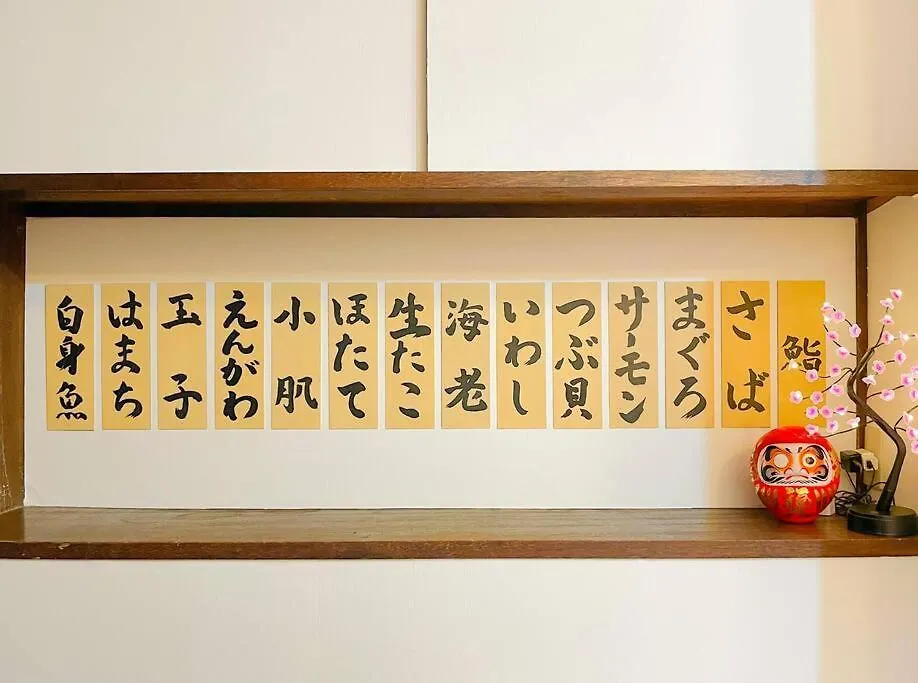 鮨
さば
まぐろ
サーモン
つぶ貝
いわし
海老
生たこ
ほたて
小肌
えんがわ
玉子
はまち
白身魚